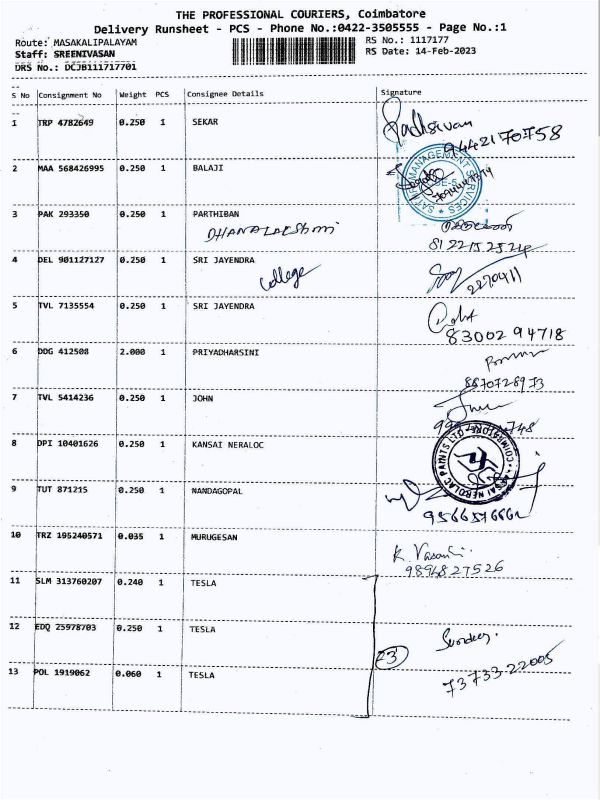 THE PROFESSIONAL COURIERS, Coimbatore
Delivery Runsheet - PCS - Phone No.:0422-3505555 - Page No.:1
Route: MASAKALIPALAYAM
RS No.: 1117177
Staff: SREENIVASAN
RS Date: 14-Feb-2023
DRS No.: DCJB111717701
S No Consignment No Weight PCS Consignee Details Signature
1 TRP 4782649 0.250 1 SEKAR
9442170758
2 MAA 568426995 0.250 1 BALAJI
MANAGEMENT SERVICES
3 PAK 293350 0.250 1 PARTHIBAN
DHANALAKSHMI
8122152524
4 DEL 901127127 0.250 1 SRI JAYENDRA
college
2270411
5 TVL 7135554 0.250 1 SRI JAYENDRA
8300294718
6 DDG 412508 2.000 1 PRIYADHARSINI
8870728973
7 TVL 5414236 0.250 1 JOHN
8 DPI 10401626 0.250 1 KANSAI NERALOC
KANSAI NEROLAC PAINTS LTD COIMBATORE
9 TUT 871215 0.250 1 NANDAGOPAL
10 TRZ 195240571 0.035 1 MURUGESAN
K. Vasanthi
9894827526
11 SLM 313760207 0.240 1 TESLA
12 EDQ 25978703 0.250 1 TESLA
23
13 POL 1919062 0.060 1 TESLA
73733 22005